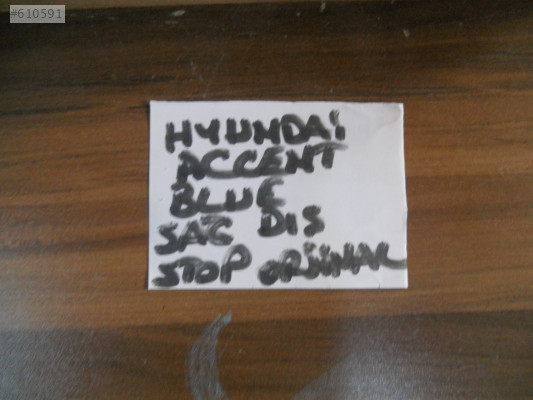 #610591
HYUNDAİ
ACCENT
BLUE
SAĞ DIS
STOP ORJİNAL